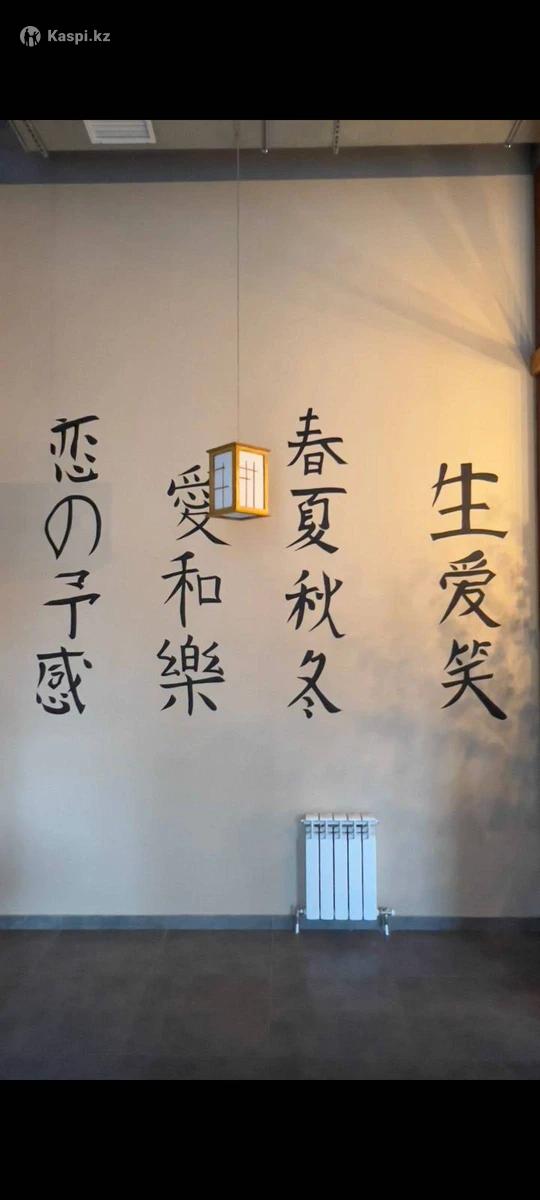 Kaspi.kz
生爱笑
春夏秋冬
愛和樂
恋の予感